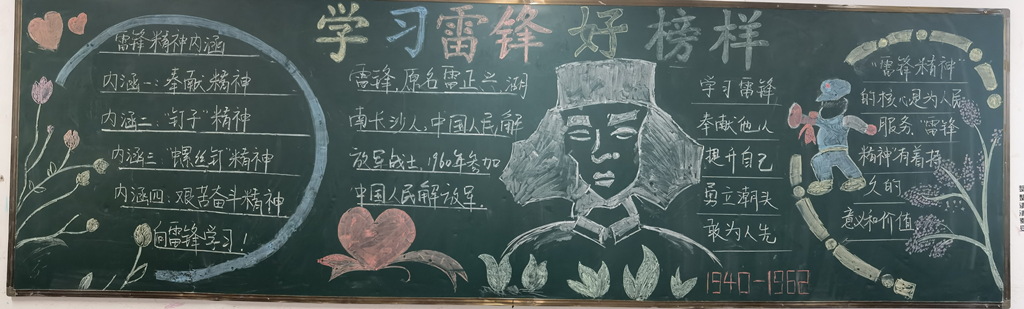 学习雷锋好榜样
雷锋精神内涵
内涵一：奉献精神
内涵二："钉子"精神
内涵三："螺丝钉"精神
内涵四：艰苦奋斗精神
向雷锋学习！
雷锋,原名雷正兴,湖
南长沙人,中国人民解
放军战士,1960年参加
中国人民解放军.
学习雷锋
奉献他人
提升自己
勇立潮头
敢为人先
1940-1962
"雷锋精神"
的核心是为人民
服务."雷锋
精神"有着持
久的
意义和价值